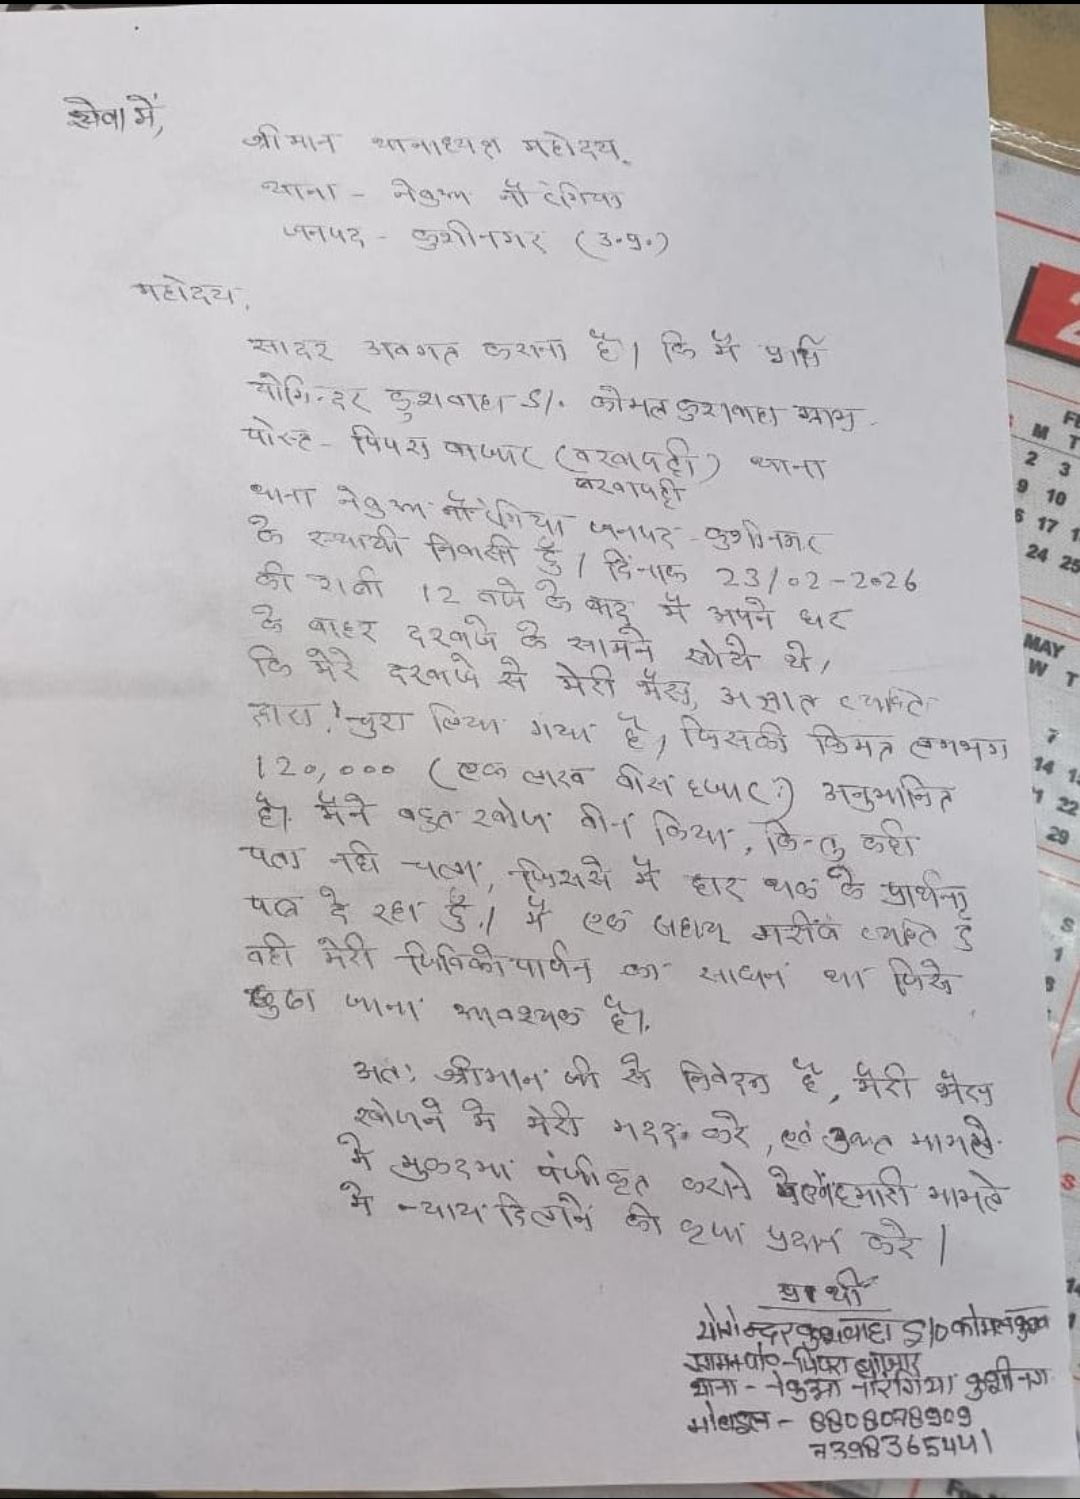 सेवा में,
श्रीमान थानाध्यक्ष महोदय,
थाना - नेबुआ नौरंगिया
जनपद - कुशीनगर (उ.प्र.)
महोदय,
सादर अवगत कराना है। कि मैं प्रार्थि
योगिन्दर कुशवाहा S/. कोमल कुशवाहा ग्राम
पोस्ट - पिपरा बाजार (बरवापट्टी) थाना
बरवापट्टी
थाना नेबुआ नौरंगिया जनपद - कुशीनगर
के स्थायी निवासी हूँ। दिंनाक 23/02-2026
की रात्री 12 बजे के बाद मैं अपने घर
के बाहर दरवाजे के सामने सोये थे,
कि मेरे दरवाजे से मेरी भैंस, अज्ञात व्यक्ति
द्वारा चुरा लिया गया है, जिसकी किमत लगभग
120,000 (एक लाख बीस हजार) अनुमानित
है। मैंने बहुत खोज बीन किया, किन्तु कही
पता नही चला, जिससे मैं हार थक के प्रार्थना
पत्र दे रहा हूँ। मैं एक गरीब व्यक्ति हूँ
वही मेरी जिविकोपार्जन का साधन था जिसे
ढुढा जाना आवश्यक है।
अतः श्रीमान जी से निवेदन है, मेरी भैंस
खोजने मे मेरी मदद करे, एवं उक्त मामले
मे मुकदमा पंजीकृत कराने हमारी मामले
मे न्याय दिलाने की कृपा प्रदान करे।
प्रार्थी
योगेन्दर कुशवाहा S/o कोमल कुश
ग्राम+पो०-पिपरा बाजार
थाना - नेबुआ नौरंगिया कुशीनग
मोबाइल - 8808078909
7398365441
FE
M T
2 3
9 10
17 1
24 25
MAY
W T
7
14 1
22
29
S
1
S